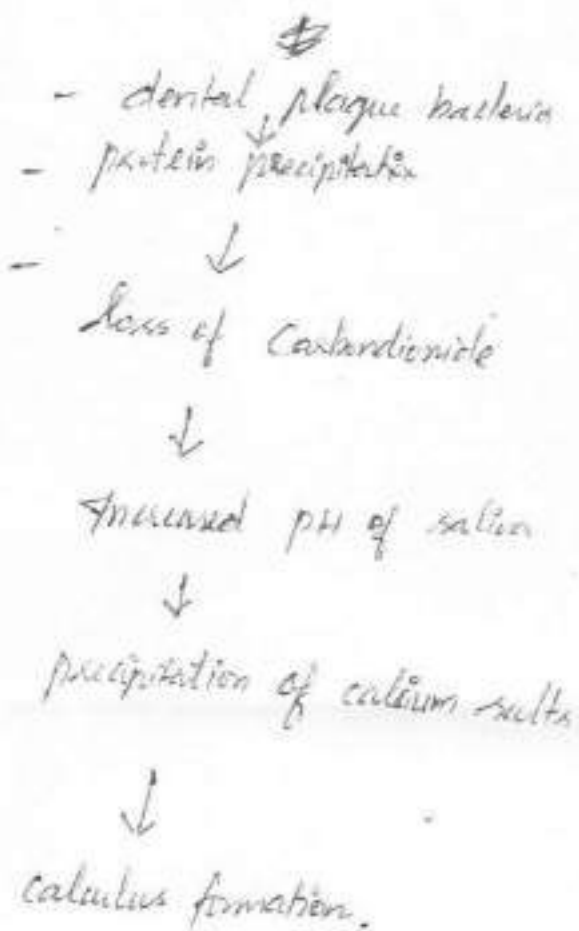 - dental plaque bacteria
↓
- protein precipitation
↓
-
Loss of Carbondioxide
↓
Increased pH of saliva
↓
precipitation of calcium salts
↓
calculus formation.